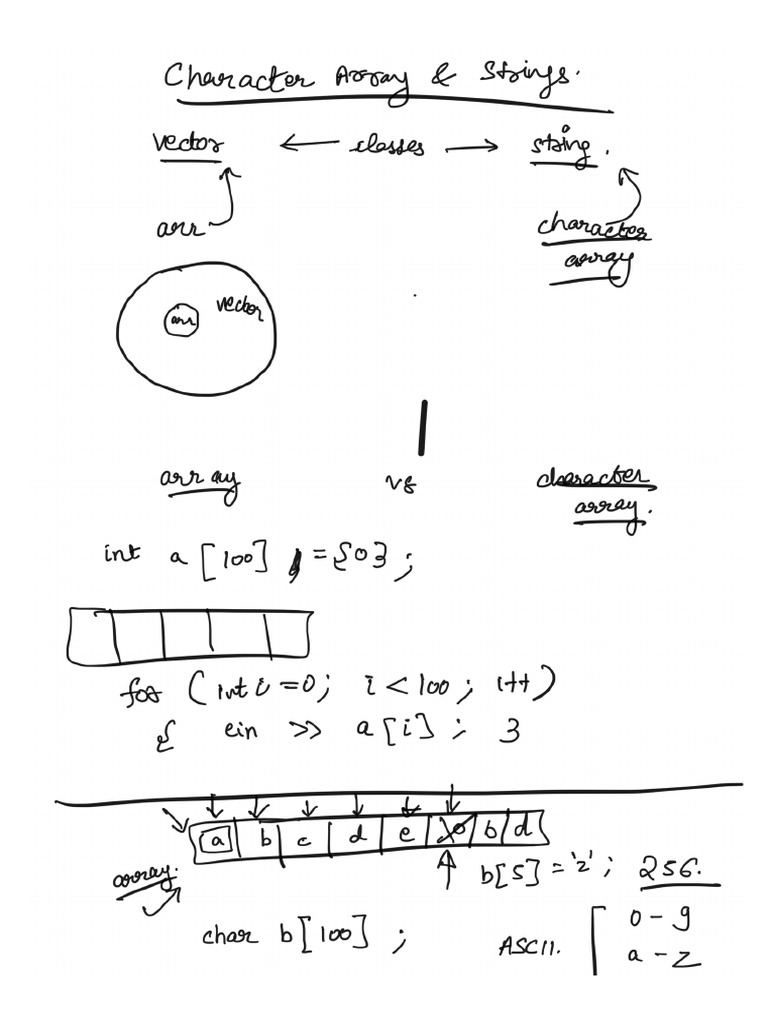 Character Array & Strings.
vector ← classes → string.
arr character
array
arr vector
array vs character
array.
int a[100] = {0};
for (int i=0; i<100; i++)
{ cin >> a[i]; }
a b c d e \0 b d
array. b[5] = 'z'; 256.
char b[100]; ASCII. 0-9
a-z